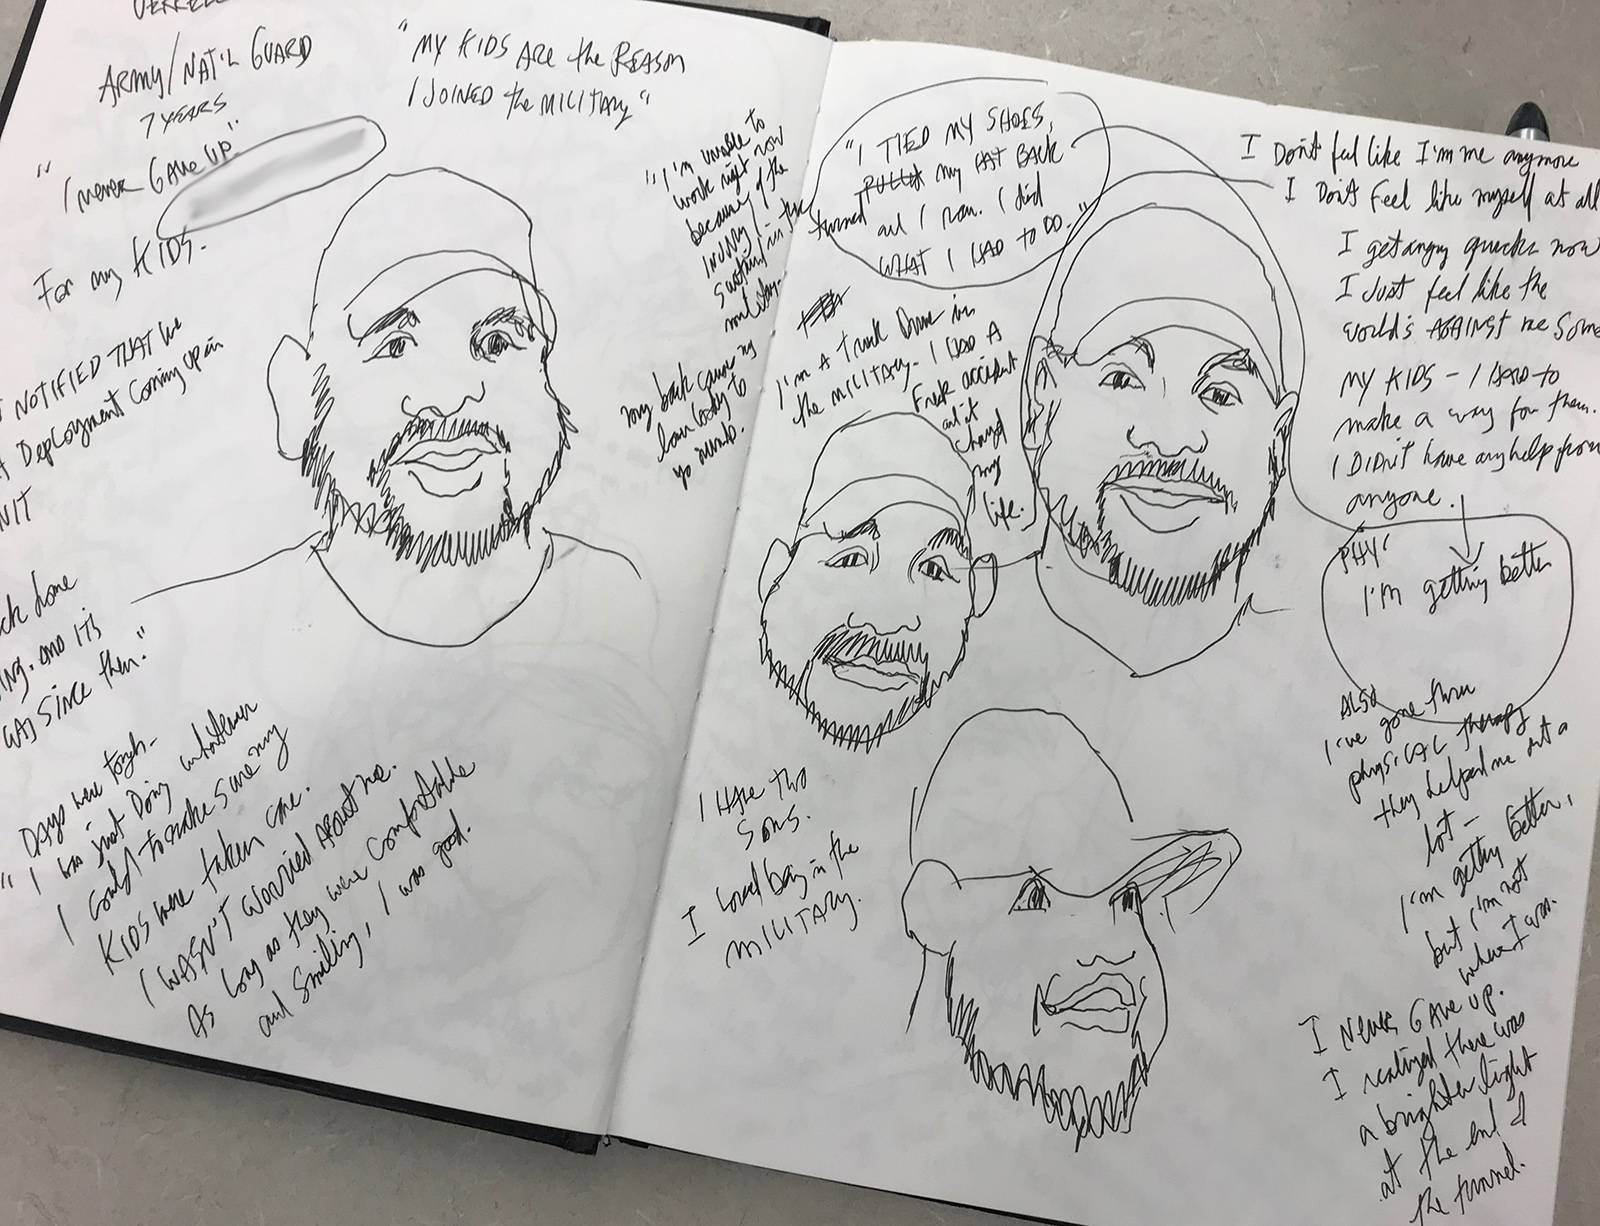 ARMY/NAT'L GUARD
7 YEARS
"I never GAVE UP"
For my KIDS.
"MY KIDS ARE the REASON
I JOINED the MILITARY"
NOTIFIED THAT we
Deployment Coming up in
home
and its
WAS SINCE then."
Days were tough-
"I was just Doing whatever
I could to make sure my
KIDS were taken care.
I WASN'T WORRIED ABOUT me.
As long as they were comfortable
and smiling, I was good.
"I'm unable to
work right now
because of the
INJURY I
sustained in the
military.
my back cause my
low body to
go numb.
"I TIED MY SHOES,
turned my HAT BACK
and I ran. I did
WHAT I HAD TO DO."
I'm A truck Driver in
the MILITARY. I HAD A
Freak accident
and it
changed
my
life.
I HAVE two
Sons.
I loved being in the
MILITARY.
I Don't feel like I'm me anymore
I Don't Feel like myself at all
I get angry quicker now
I Just feel like the
world's AGAINST me Some
MY KIDS - I HAD to
make a way for them.
I DIDN'T have any help from
anyone.
PHY
I'M getting better
ALSO
I've gone thru
physical therapy
they helped me out a
lot-
I'm getting better,
but I'm not
where I was.
I Never GAVE UP.
I realized there was
a brighter light
at the end of
the tunnel.